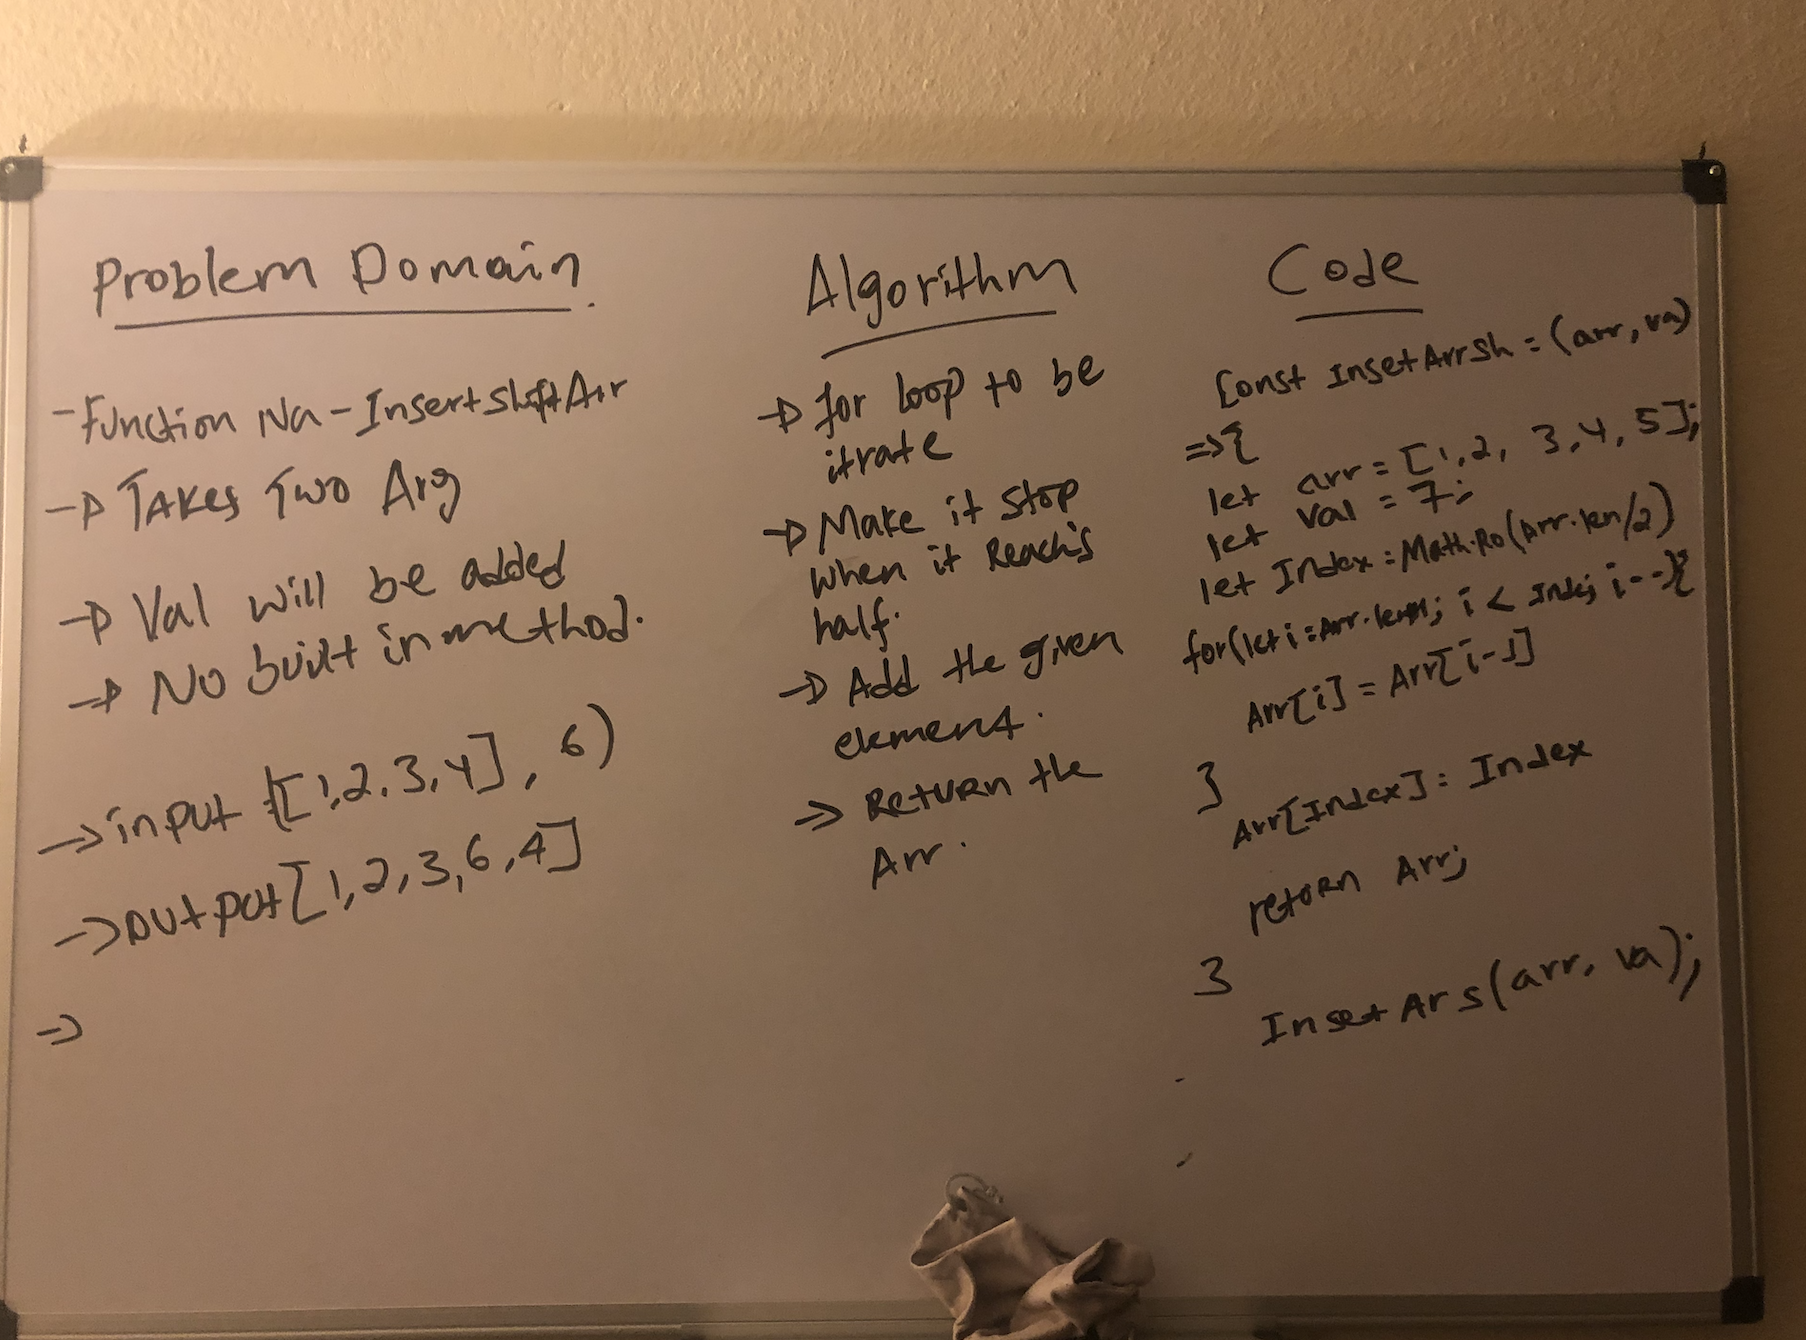 Problem Domain.
-Function Na-InsertshiftArr
-> TAKES Two Arg
-> Val will be added
-> NO built in method.
->input ([1,2,3,4], 6)
->output[1,2,3,6,4]
->
Algorithm
-> for loop to be
itrate
-> Make it stop
when it Reach's
half.
-> Add the given
element.
-> Return the
Arr.
Code
Const InsetArrSh = (arr, va)
=>{
let arr = [1,2, 3,4, 5];
let val = 7;
let Index = Math.Ro(Arr.len/2)
for(let i = Arr. ; i < Index; i--){
Arr[i] = Arr[i-1]
}
Arr[Index] = Index
return Arr;
}
Inset Ar s(arr, va);